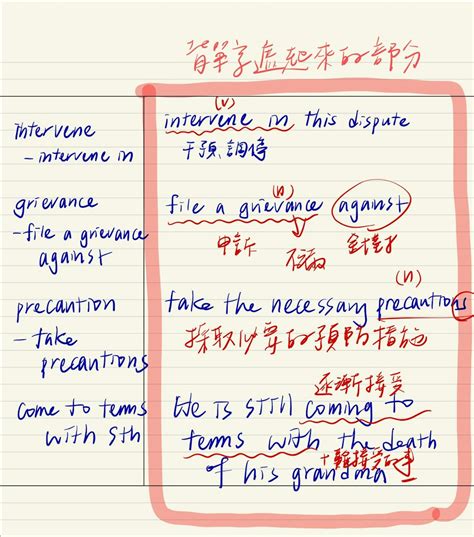 背單字遮起來的部分
intervene
- intervene in
(v)
intervene in this dispute
干預 調停
grievance
- file a grievance
against
(n)
file a grievance against
申訴 不滿 針對
precaution
- take
precautions
(n)
take the necessary precautions
採取必要的預防措施
come to terms
with sth
逐漸接受
He is still coming to
terms with the death
of his grandma
+難接受的事